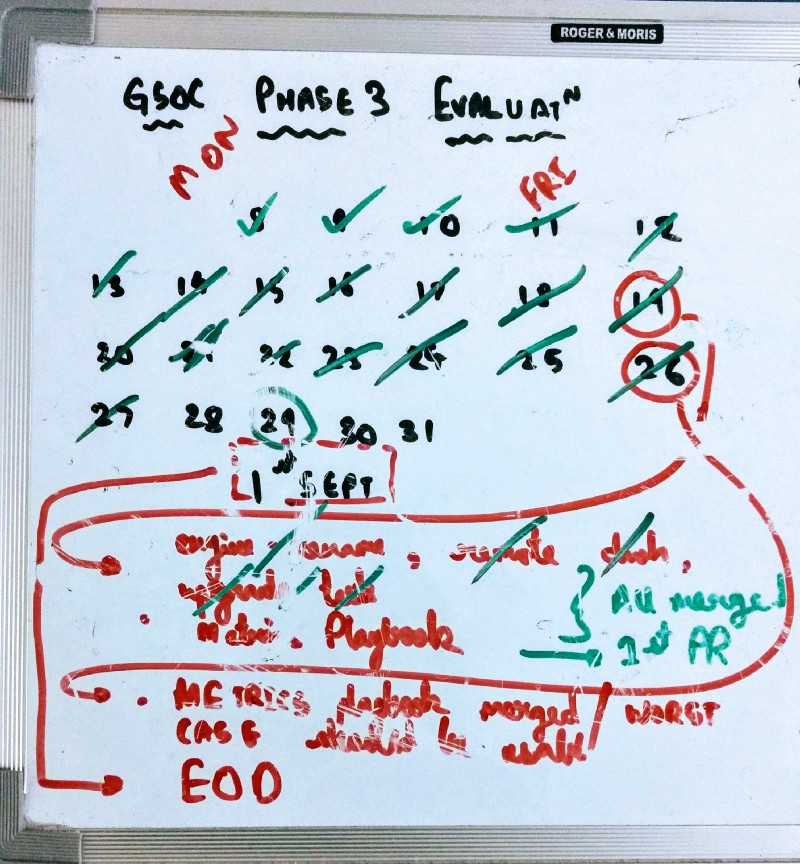 ROGER & MORIS
GSOC PHASE 3 EVALUATN
MON FRI
8 9 10 11 12
13 14 15 16 17 18 19
20 21 22 23 24 25 26
27 28 29 30 31
1st SEPT
engine rename, remote dash,
All merged
Metric. Playbook
1st PR
METRICS playbook merged / WORST
CASE should be
EOD